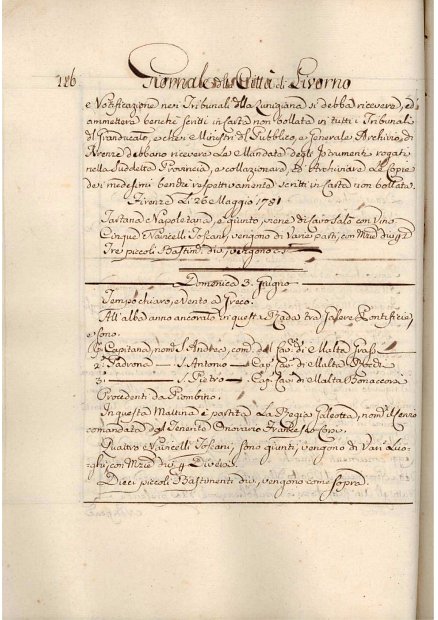 126 Giornale della Città di Livorno
e Notificazione nei Tribunali della Lunigiana si debba ricevere, ed
ammettere benche scritti in Carta non bollata in tutti i Tribunali
del Granducato, e che i Ministri del Pubblico, e Generale Archivio, di
Firenze debbano ricevere le Mandate degli Istrumenti rogati
nella suddetta Provincia, e collazionare, ed Archiviare le Copie
dei medesimi benche respettivamente scritti in Carta non bollata
Firenze Li 26 Maggio 1781
Tartana Napoletana, è giunto, viene di con Vino
Cinque Navicelli Toscani, vengono di Varie parti, con Mzie div.
Tre piccoli Bastimti div. vengono c. s.
Domenica 3. Giugno
Tempo chiaro, e Vento a Greco.
All'alba anno ancorato in questa Rada tre Galere Pontificie,
e sono.
Capitana, nom. S. Andrea, com. dal Cav. di Malta
2. Padrona — S. Antonio — Cap. Cav. di Malta
3. — S. Pietro — Cap. Cav. di Malta Bonaccorsi
Procedenti da Piombino.
In questa Mattina è partita La Regia Galeotta, nom.
comandata dal Tenente Onorario Francesco
Quattro Navicelli Toscani, sono giunti, vengono di Vari Luo-
ghi, con Mzie div.
Dieci piccoli Bastimenti div. vengono come sopra